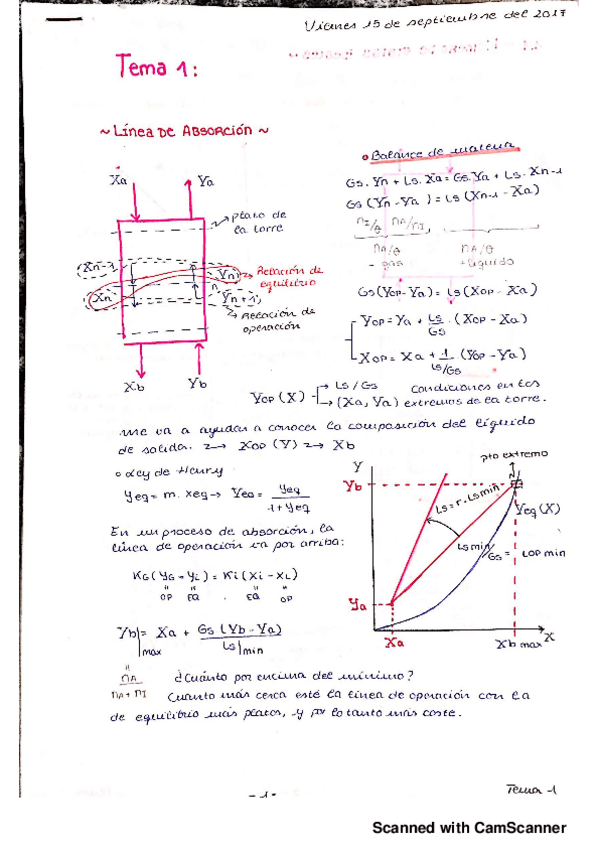 Viernes 15 de septiembre del 2017
Tema 1:
~ Línea DE ABSORCIÓN ~
Xa
Ya
plato de
la torre
Xn-1
Yn
Relación de
equilibrio
Xn
n
Yn+1
Relación de
operación
Xb
Yb
o Balance de materia
Gs. Yn + Ls. Xa = Gs. Ya + Ls. Xn-1
Gs (Yn - Ya) = Ls (Xn-1 - Xa)
nI/θ nA/nI
nA/θ
gas
nA/θ
líquido
Gs (Yop - Ya) = Ls (Xop - Xa)
Yop = Ya + Ls/Gs . (Xop - Xa)
Xop = Xa + 1/(Ls/Gs) (Yop - Ya)
Yop (X) → Ls / Gs condiciones en los
→ (Xa, Ya) extremos de la torre.
me va a ayudar a conocer la composición del líquido
de salida. → Xop (Y) → Xb
o Ley de Henry
yeq = m. xeq → Yeq = yeq / 1+yeq
En un proceso de absorción, la
línea de operación va por arriba:
KG (YG - Yi) = Ki (Xi - XL)
OP EQ EQ OP
Yb|max = Xa + Gs (Yb - Ya) / Ls|min
nA / nA + nI
Y
Yb
pto extremo
Ls = r. Ls min
Yeq (X)
Ls min/Gs = LOP min
Ya
Xa
Xb max
X
¿Cuánto por encima del mínimo?
Cuanto más cerca esté la línea de operación con la
de equilibrio más platos, y por lo tanto más coste.
- 1 -
Tema -1
Scanned with CamScanner